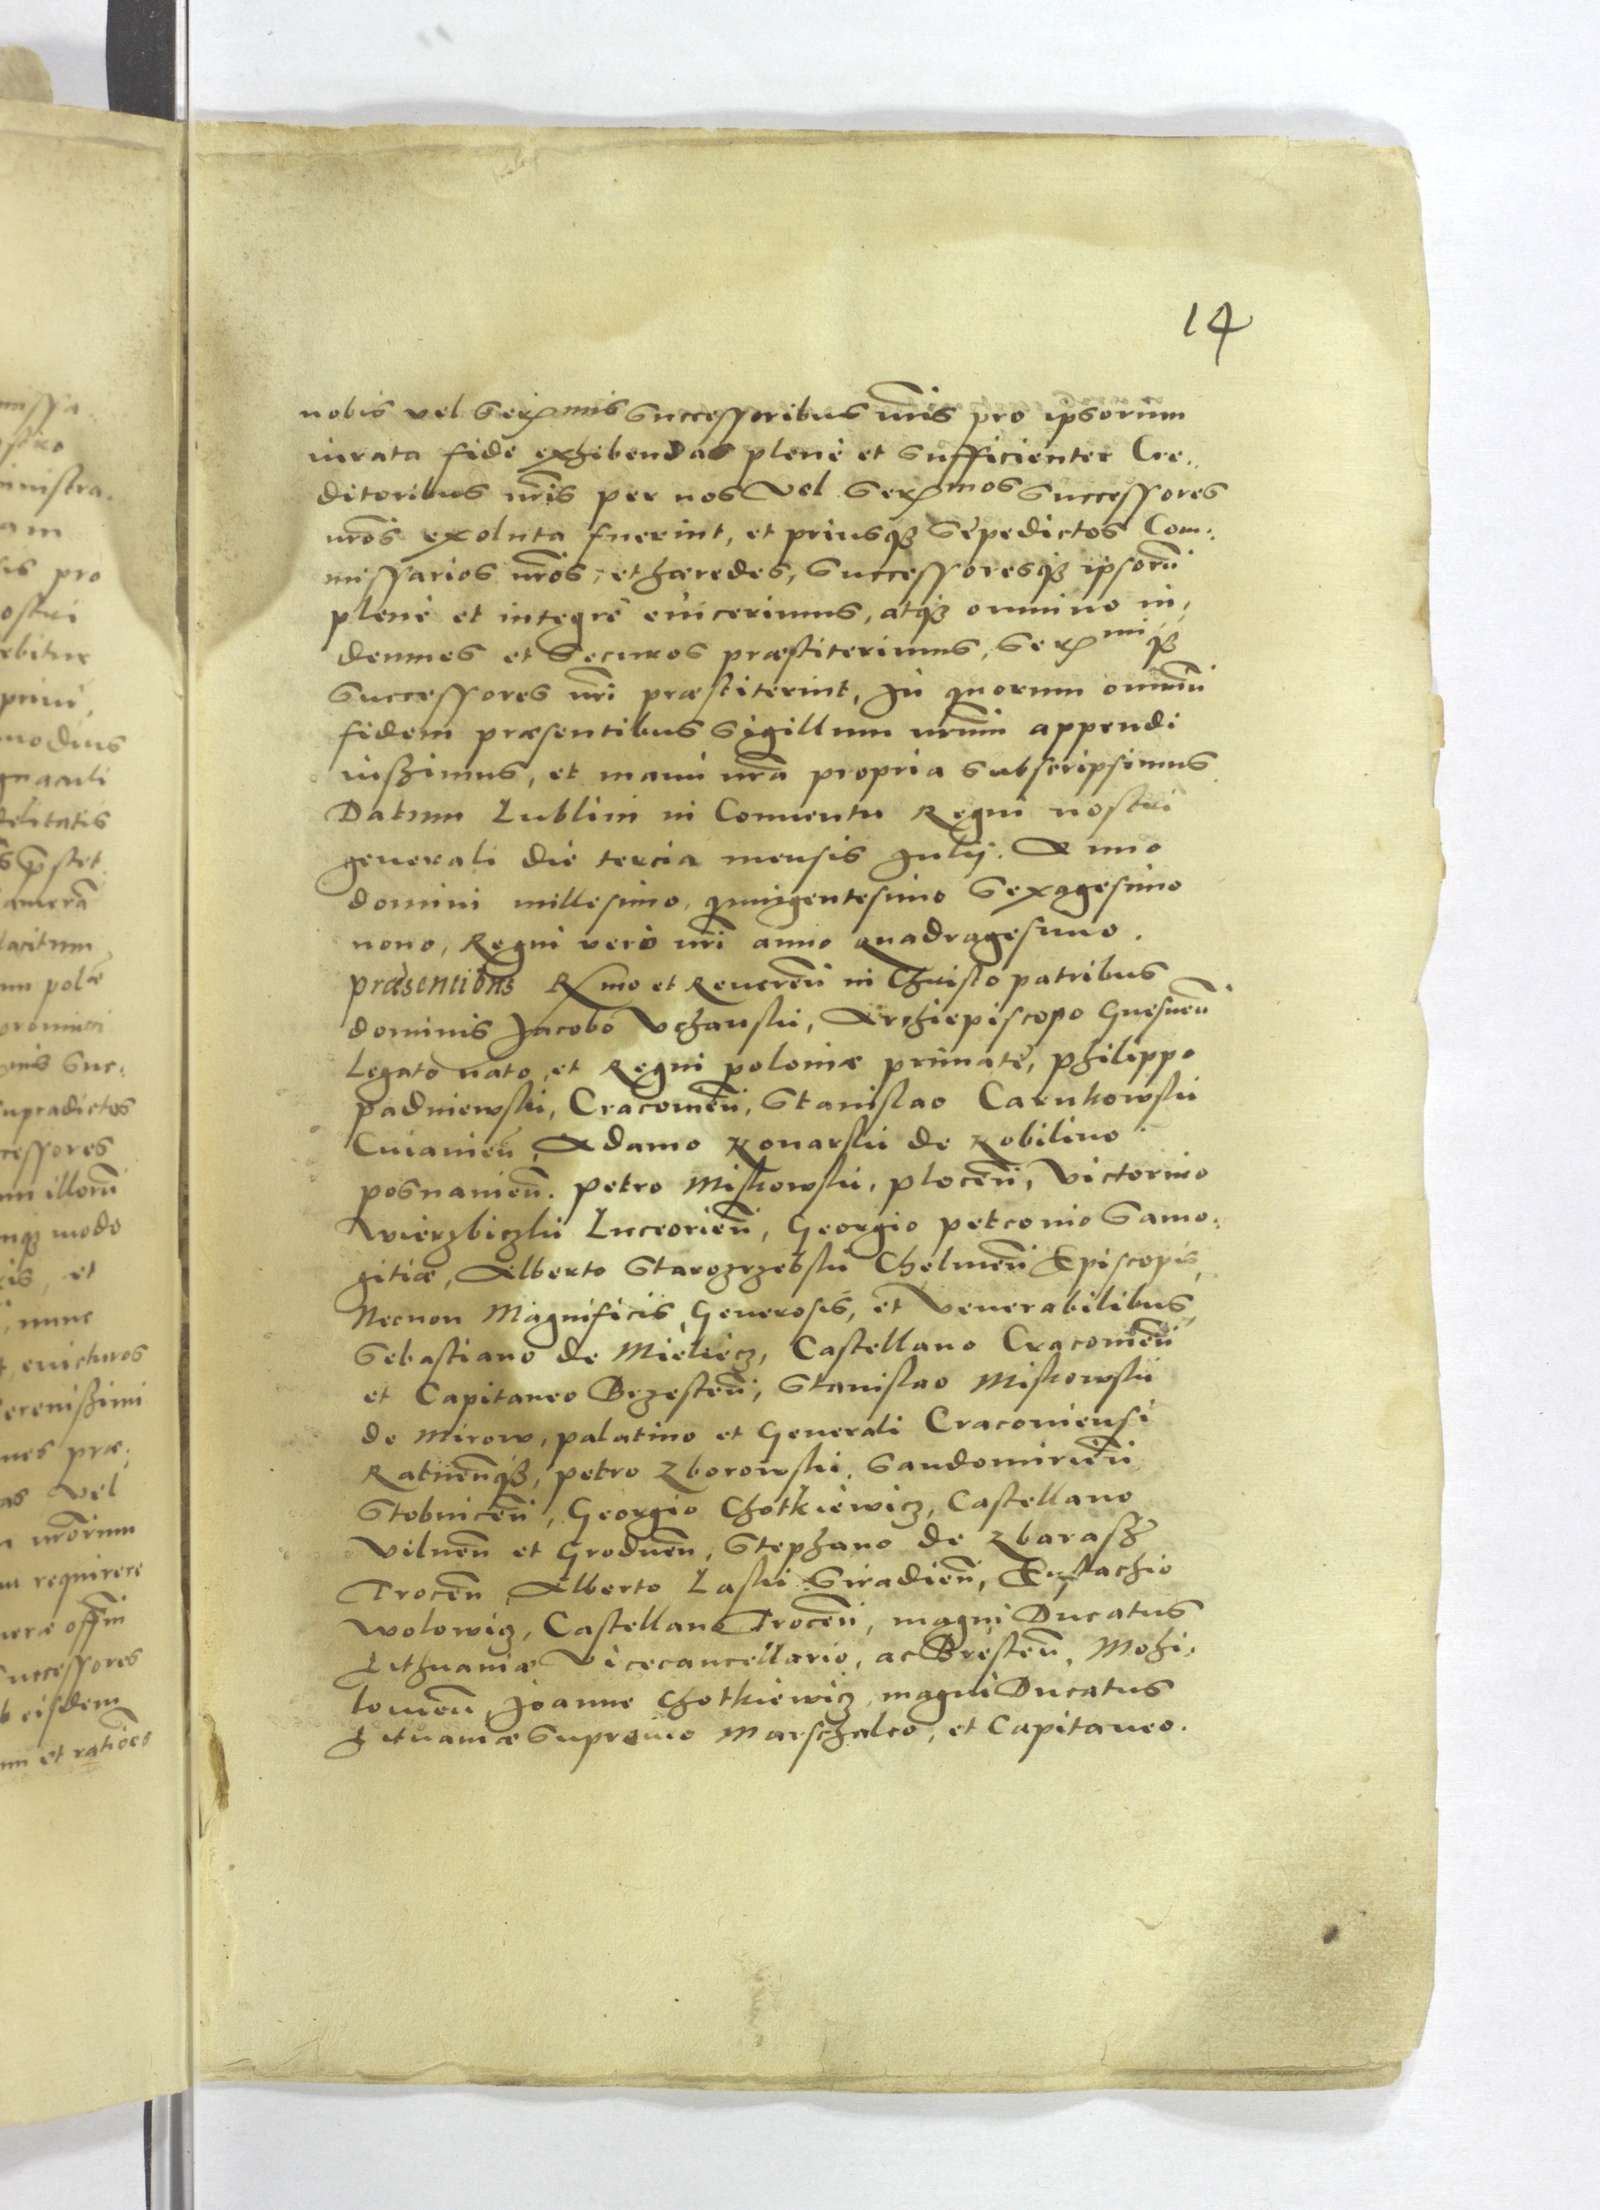 14
nobis vel Serᵐⁱˢ Successoribus nr̃is pro ipsorum
iurata fide exhibendas plenè et sufficienter Cre¬
ditoribus nr̃is per nos Vel Serᵐᵒˢ Successores
nr̃os exoluta fuerint, et priusqȝ Sępedictos Com¬
missarios nr̃os, et hæredes, Successoresqȝ ipsorũ
plenè et integrè euicerimus, atqȝ omnino in¬
demnes et Securos præstiterimus, Serᵐⁱqȝ
Successores nr̃i præstiterint, In quorum omniũ
fidem præsentibus Sigillum nr̃um appendi
iussimus, et manu nr̃a propria subscripsimus
Datum Lublini in Conuentu Regni nostri
generali die tercia mensis Julij. Anno
domini millesimo, quingentesimo Sexagesimo
nono, Regni verò nr̃i anno quadragesimo.
præsentibus Rᵐᵒ et Reueren̄ in Christo patribus
dominis Jacobo Vchanski, Archiepiscopo Gnesnen̄
Legato nato, et Regni poloniæ primate, Philippo
padniewski, Cracouien̄, Stanislao Carnkowski
Cuiauien̄, Adamo Konarski de Kobilino
posnanien̄. Petro Miskowski, plocen̄, Victorino
Wierzbiczki Luceorien̄, Georgio petconio Samo¬
gitiæ, Alberto Starozrzebski Chelmen̄ Episcopis,
Necnon Magnificis, Generosis, et Venerabilibus,
Sebastiano de Mielecz, Castellano Cracouien̄
et Capitaneo Brzesten̄, Stanislao Miskowski
de Mirow, palatino et Generali Cracouiensi
Ratnen̄qȝ, petro Zborowski, Sandomirien̄
Stobnicen̄, Georgio Chotkiewicz, Castellano
Vilnen̄ et Grodnen̄, Stephano de Zbarasz
Trocen̄, Alberto Laski Siradien̄, Eustachio
Wolowicz, Castellano Trocen̄, magni Ducatus
Lithuaniæ Vicecancellario, ac Bresten̄, Mohi¬
louien̄, Joanne Chotkiewicz, magni Ducatus
Lituaniæ Supremo Marschalco, et Capitaneo.